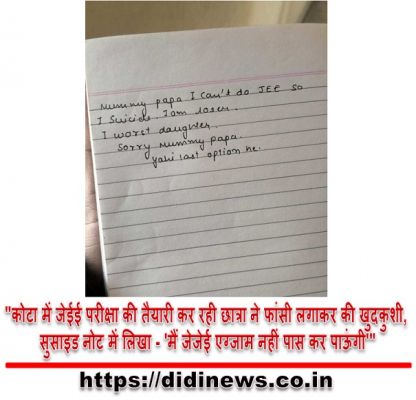 Mummy papa I Can't do JEE So
I Suicide. I am loser.
I worst daughter.
Sorry Mummy papa.
yahi last option he.
"कोटा में जेईई परीक्षा की तैयारी कर रही छात्रा ने फांसी लगाकर की खुदकुशी,
सुसाइड नोट में लिखा - 'मैं जेजेई एग्जाम नहीं पास कर पाऊंगी'"
https://didinews.co.in